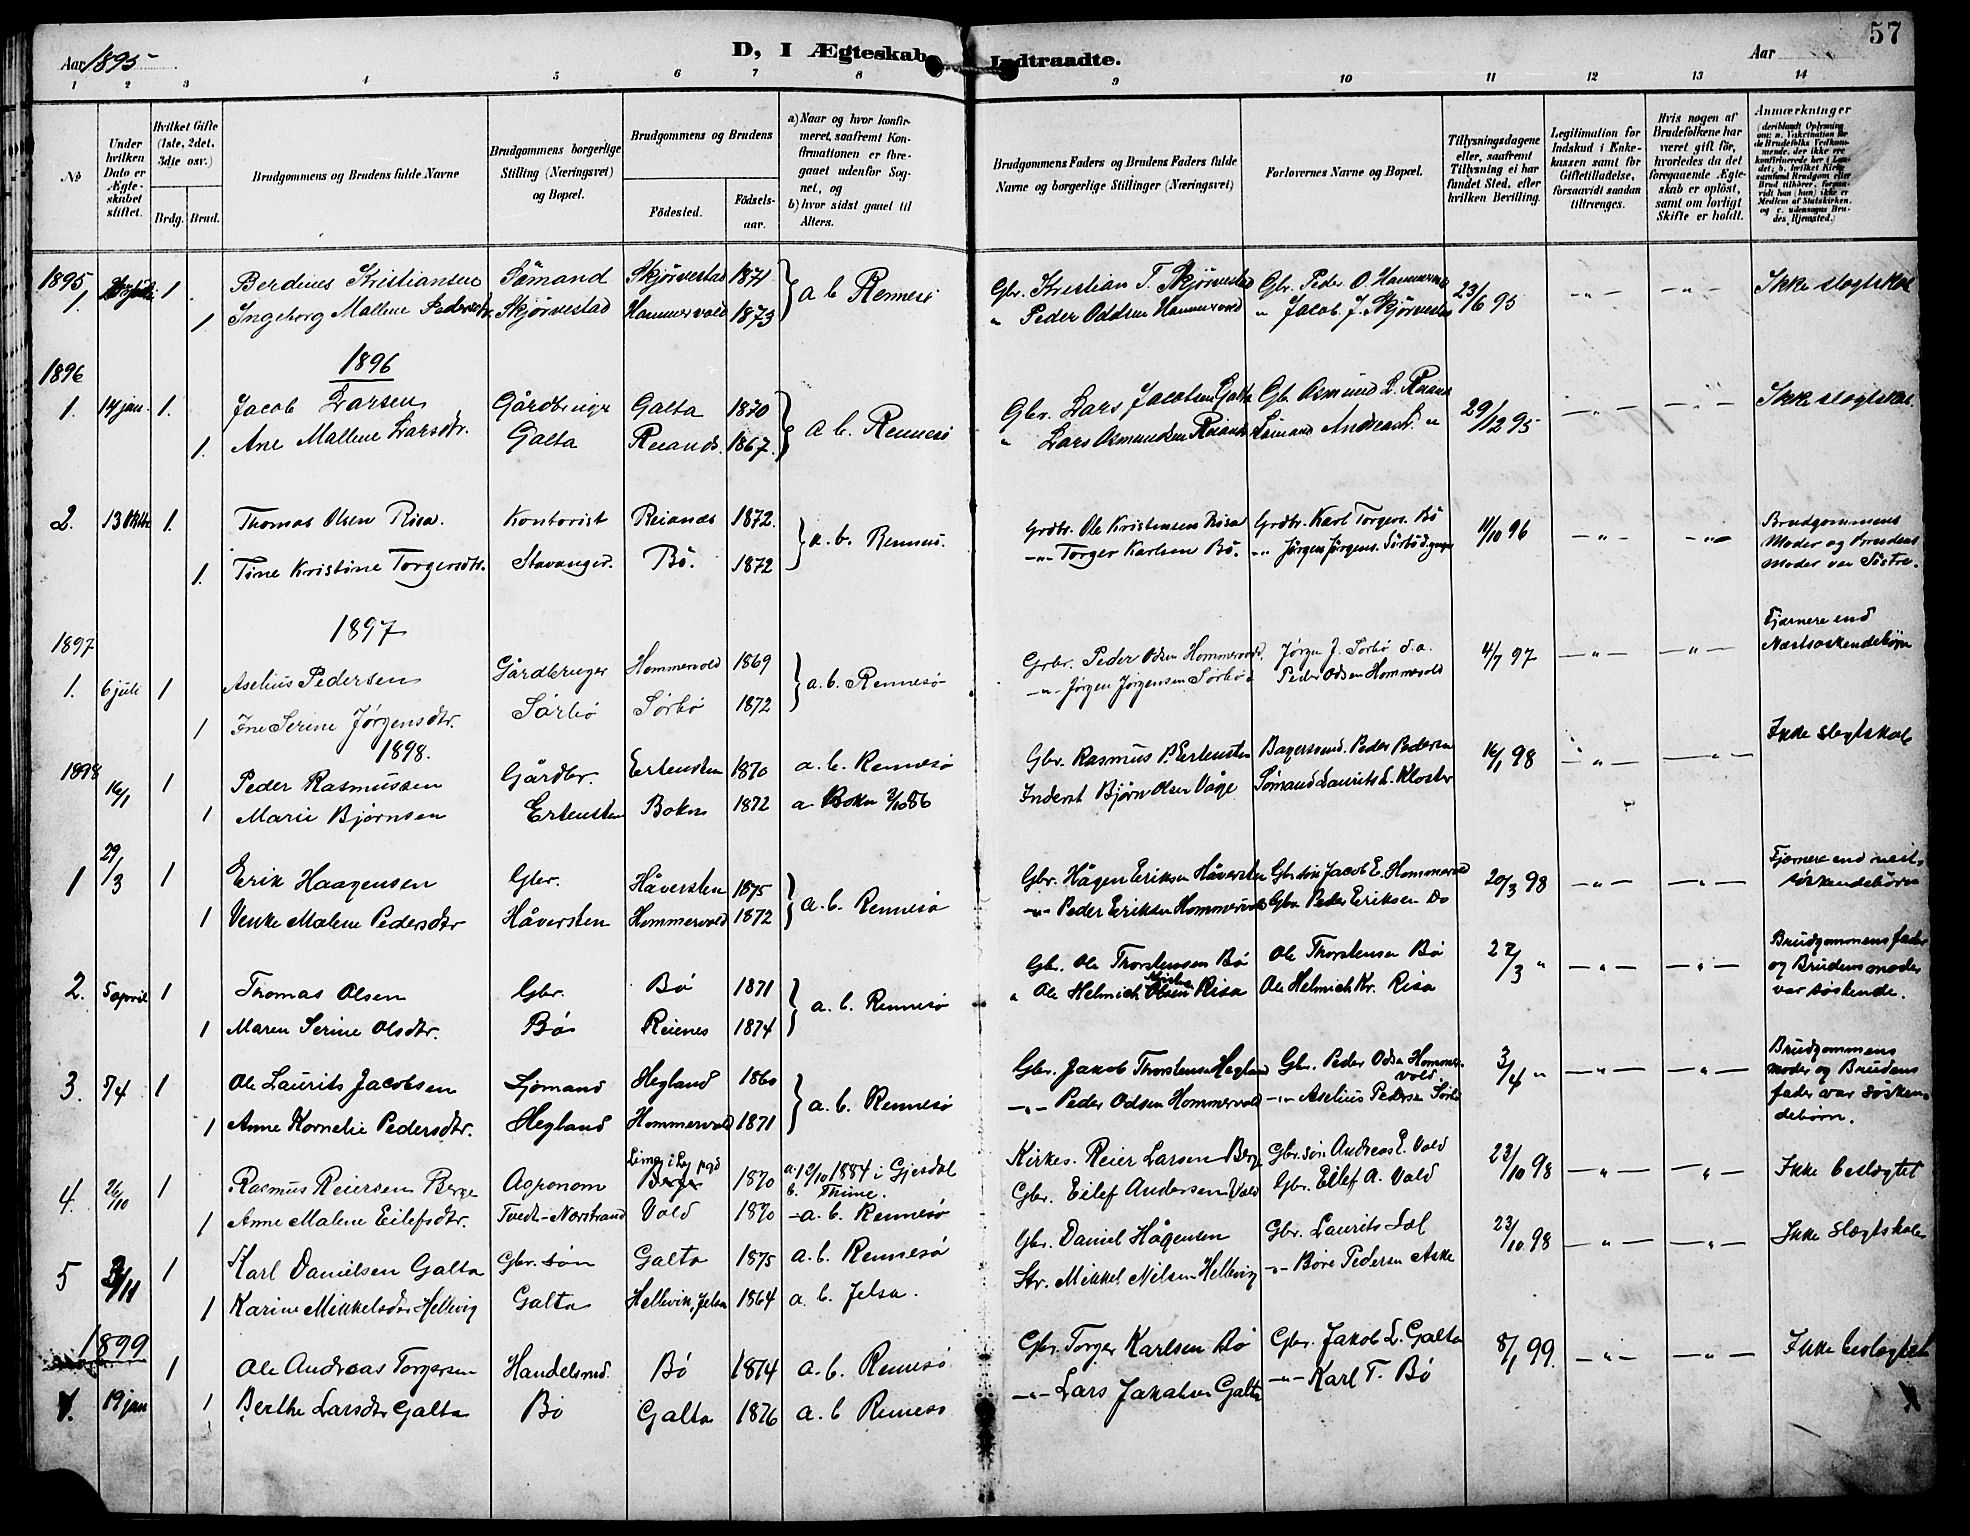 Aar 1895
D, I Ægteskab Indtraadte.
Aar
57
1 2 3 4 5 6 7 8 9 10 11 12 13 14
No
Under hvilken Dato er Ægteskabet stiftet.
Hvilket Gifte (1ste, 2det, 3dje osv.)
Brdg. Brud.
Brudgommens og Brudens fulde Navne
Brudgommens borgerlige Stilling (Næringsvei) og Bopæl.
Brudgommens og Brudens
Fødested.
Fødselsaar.
a) Naar og hvor konfirmeret, saafremt Konfirmationen er foregaaet udenfor Sognet, og
b) hvor sidst gaaet til Alters.
Brudgommens Faders og Brudens Faders fulde Navne og borgerlige Stillinger (Næringsvei)
Forlovernes Navne og Bopæl.
Tillysningsdagene eller, saafremt Tillysning ei har fundet Sted, efter hvilken Bevilling.
Legitimation for Indskud i Enkekassen samt for Giftetilladelse, forsaavidt saadan tiltrænges.
Hvis nogen af Brudefolkene har været gift før, hvorledes da det foregaaende Ægteskab er opløst, samt om lovligt Skifte er holdt.
Anmærkninger
1895
1. 1 Berdines Kristiansen Sömand Skjörvestad 1871 } a b Rennesö Gbr. Kristian T. Skjörvestad Gbr. Peder O. Hammervold 23/6 95 -"- -"- Ikke slegtskab
1 Ingeborg Mallene Pedersdtr. Skjörvestad Hammervold 1873 " Peder Oddsen Hammervold " Jacob J. Skjörvestad
1896
1896
1. 14 jan. 1. Jacob Larsen Gårdbruger Galta 1870 } a b. Rennesö Gbr. Lars Jacobsen Galta Gbr. Osmund L. 29/12 95 -"- -"- Ikke slegtskab.
1. Ane Mallene Larsdtr. Galta Reiands. 1867. " Lars Osmundsen Sömand Andreas L. "
2. 13 Oktbr 1. Thomas Olsen Risa. Kontorist Reianes 1872. } a. b. Rennesö. Grdbr. Ole Kristensen Risa Grdbr. Karl Torgers. Bö 11/10 96 -"- -"- Brudgommens
Moder og Brudens
Moder var Söstre.
1. Tine Kristine Torgersdtr. Stavanger. Bö. 1872 -"- Torger Karlsen Bö. -"- Jörgen Jörgens. Sörbö
1897
1897
1. 6 juli 1 Aselius Pedersen Gårdbruger Hommervold 1869 } a. b. Rennesø Grbr. Peder Odsen Hommervold. Jørgen J. Sørbø d.a. 4/7 97 -"- -"- Fjærnere end
Næstsøskendebørn
1 Ine Serine Jørgensdtr. Sørbø Sørbø 1872 -"- Jørgen Jørgensen Sørbø Peder Odsen Hommervold
1898.
1898 16/1 1 Peder Rasmussen Gårdbr. Ertensten 1870 a. b. Rennesø Gbr. Rasmus P. Ertensten Bagersvend. Peder Pedersen 16/1 98 -"- -"- Ikke slegtskab
1 Marie Bjørnsen Ertensten Bokn 1872 a Bokn 3/10 86 Inderst Bjørn Olsen Våge Sømand Laurits L. Kloster
1 29/3 1 Erik Haagensen Gbr. Håversten 1875 } a. b. Rennesø Gbr. Hågen Eriksen Håversten Gbr.søn Jacob E. Hommervold 20/3 98 -"- -"- Fjærnere end næst-
søskendebørn
1 Venke Malene Pedersdtr Håversten Hommervold 1872 -"- Peder Eriksen Hommervold Gbr. Peder Eriksen Do
2. 5 april 1 Thomas Olsen Gbr. Bø 1871 } a. b. Rennesø Gbr. Ole Thorstensen Bø Ole Thorstensen Bø 27/3 " -"- -"- Brudgommens fader
og Brudens moder
var søskende.
1 Maren Serine Olsdtr. Bø Reienes 1874 " Ole Helmich Olsen Risa Ole Helmich Kr. Risa
3. 5/4 1 Ole Laurits Jacobsen Sjømand Hegland 1860 } a. b. Rennesø Gbr. Jakob Thorstensen Hegland Gbr. Peder Odsen Hommer-
vold 3/4 " -"- -"- Brudgommens
moder og Brudens
fader var søsken-
debørn.
1 Anne Kornelie Pedersdtr. Hegland Hommervold 1871 -"- Peder Odsen Hommervold -"- Aselius Pedersen Sørbø
4. 26/10 1 Rasmus Reiersen Berge Agronom Berge 1870 a. 12/10 1884 i Gjesdal
b. Thime. Kirkes. Reier Larsen Berge Gbr.søn Andreas E. Vold 23/10 98 -"- -"- Ikke beslægtet
1 Anne Malene Eilefsdtr. Tvedt-Nærstrand Vold 1870 - a. b. Rennesø Gbr. Eilef Andersen Vold Gbr. Eilef A. Vold
5 1 Karl Danielsen Galta Gbr. søn Galta 1875 a. b. Rennesø Gbr. Daniel Hågensen Gbr. Laurits Dal 23/10 98 -"- -"- Ikke slægtskab
1 Karine Mikkelsdtr Hellevig Galta Hellevik, Jelsa 1864 a. b. Jelsa. Str. Mikkel Nilsen Hellevig -"- Børe Pedersen Aske
1899
1 Ole Andreas Torgersen Handelsmd. Bø 1874 a. b. Rennesø Gbr. Torger Karlsen Bø Gbr. Jakob L. Galta 8/1 99 -"- -"- Ikke beslægtet
1. 19 jan 1 Berthe Larsdtr Galta Bø Galta 1876 a. b Rennesø -"- Lars Jakobsen Galta -"- Karl T. Bø